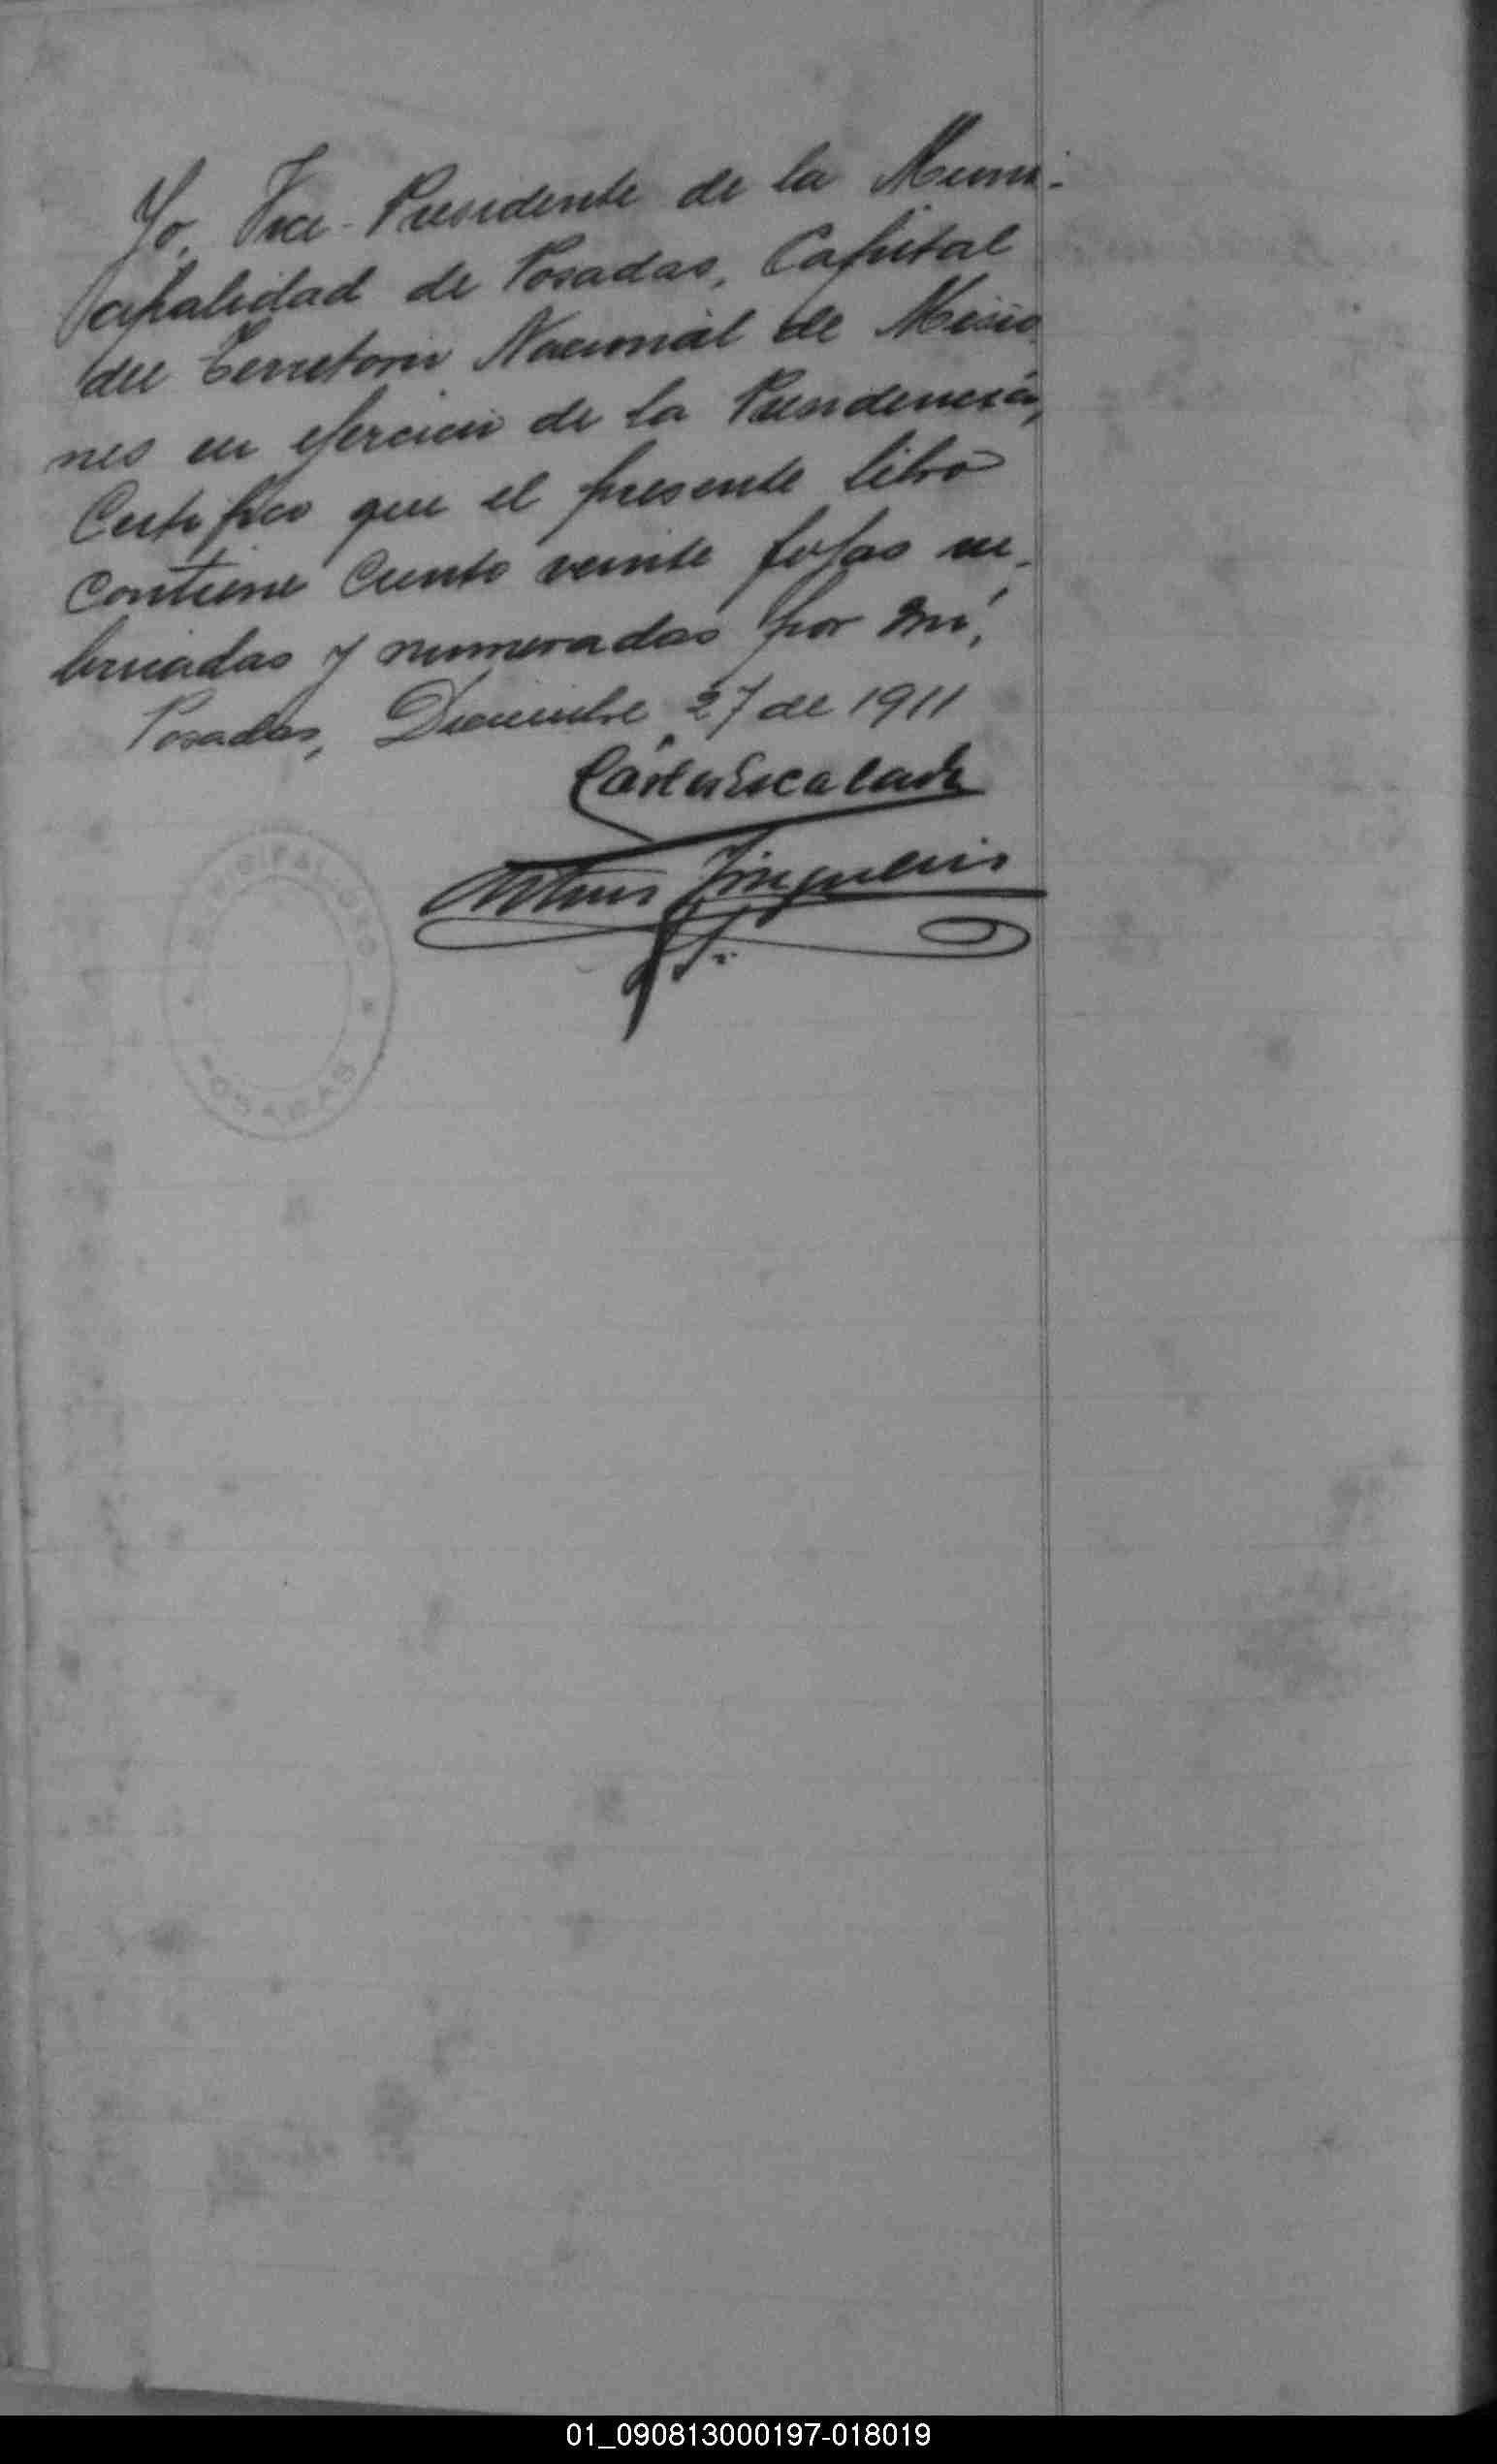 Yo, Vice-Presidente de la Muni-
cipalidad de Posadas, Capital
del Territorio Nacional de Misio
nes en ejercicio de la Presidencia,
Certifico que el presente libro
contiene Ciento veinte fojas ru-
bricadas y numeradas por mí,
Posadas, Diciembre 27 de 1911
Carlos Escalada
Arturo
MUNICIPALIDAD
POSADAS
01_090813000197-018019